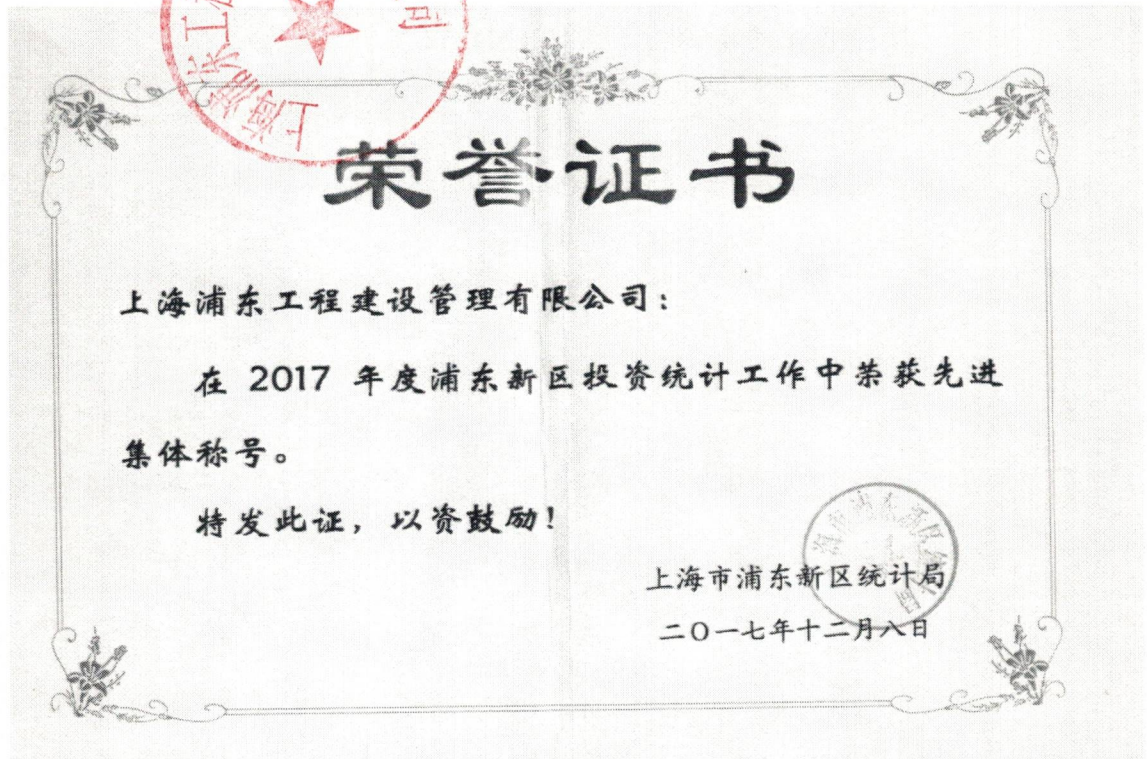 上海浦东工
司
荣誉证书
上海浦东工程建设管理有限公司：
在 2017 年度浦东新区投资统计工作中荣获先进
集体称号。
特发此证，以资鼓励！
上海市浦东新区统计局
二〇一七年十二月八日